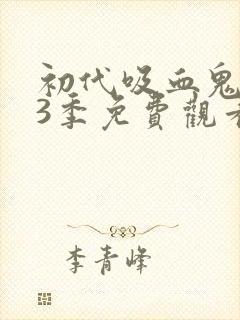 初代吸血鬼
3季免費觀看
李青峰